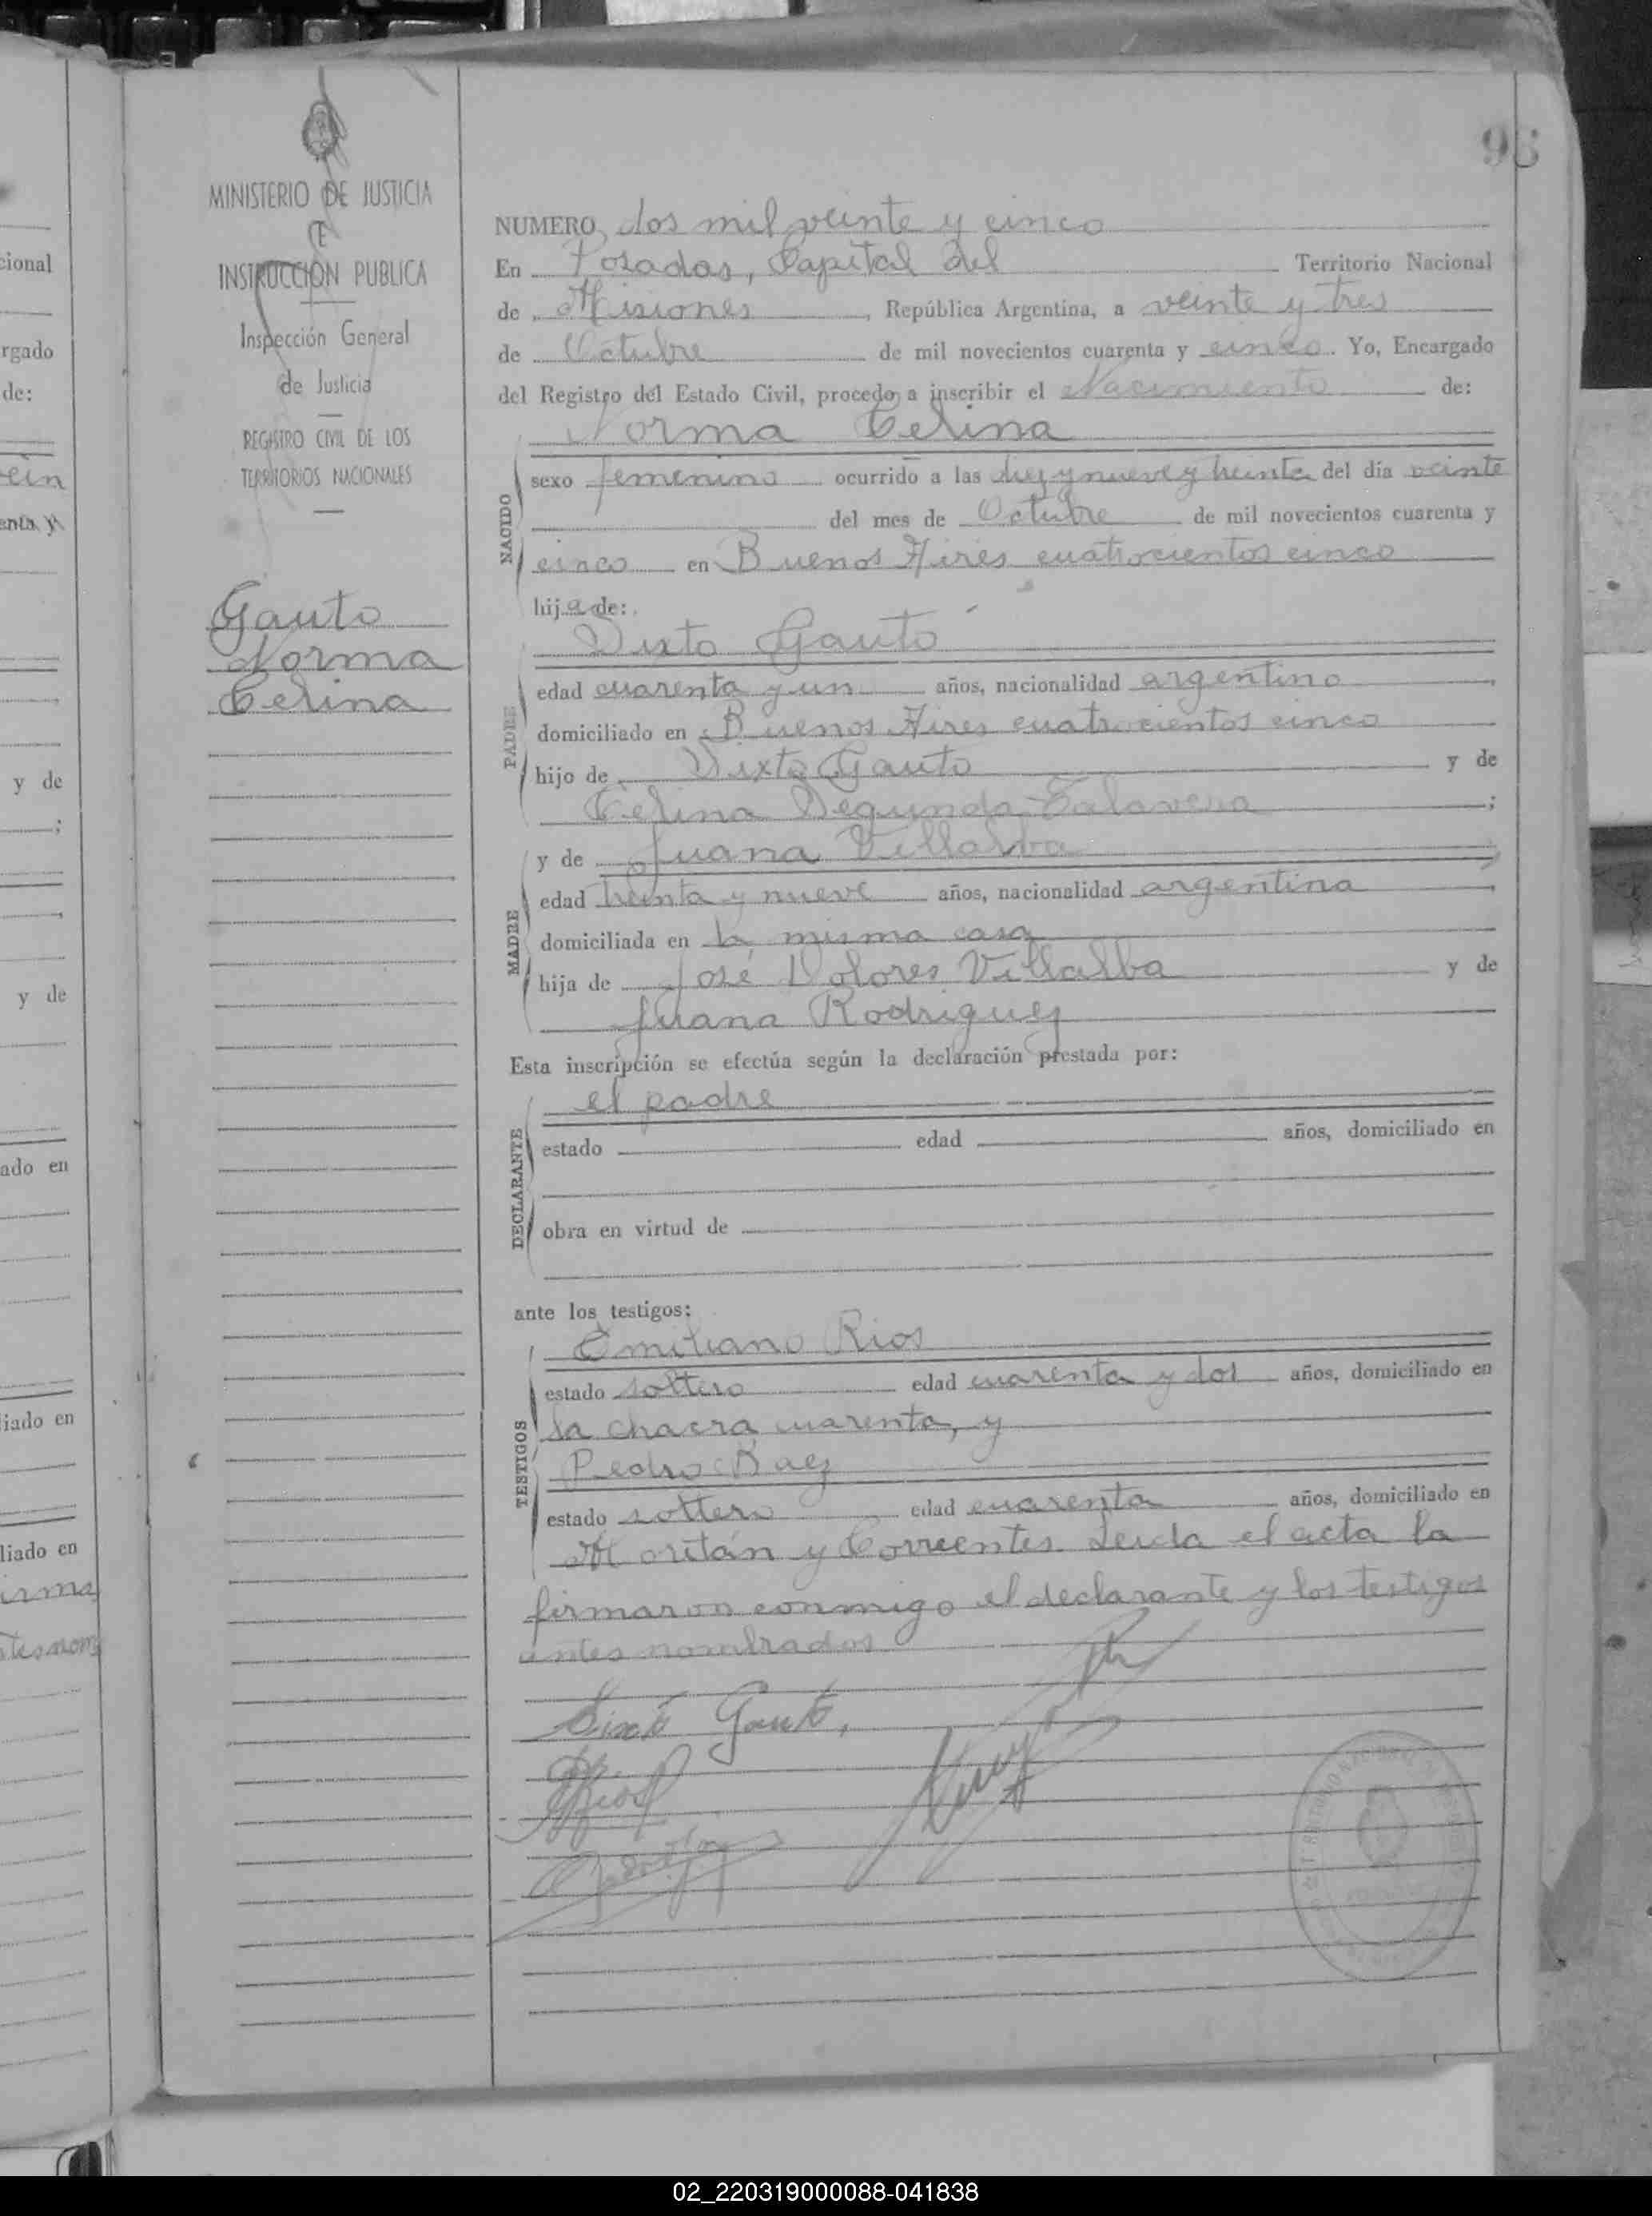 96
MINISTERIO DE JUSTICIA
E
INSTRUCCION PUBLICA
Inspección General
de Justicia
REGISTRO CIVIL DE LOS
TERRITORIOS NACIONALES
Gauto
Norma
Celina
NUMERO dos mil veinte y cinco
En Posadas, Capital del Territorio Nacional
de Misiones, República Argentina, a veinte y tres
de Octubre de mil novecientos cuarenta y cinco. Yo, Encargado
del Registro del Estado Civil, procedo a inscribir el Nacimiento de:
Norma Celina
NACIDO
sexo femenino ocurrido a las diez y nueve y treinta del día veinte
del mes de Octubre de mil novecientos cuarenta y
cinco en Buenos Aires cuatrocientos cinco
hija de:
Sixto Gauto
PADRE
edad cuarenta y un años, nacionalidad argentino
domiciliado en Buenos Aires cuatrocientos cinco
hijo de Sixto Gauto y de
Celina Segunda Talavera;
y de Juana Villalba
MADRE
edad treinta y nueve años, nacionalidad argentina
domiciliada en la misma casa
hija de José Dolores Villalba y de
Juana Rodriguez
Esta inscripción se efectúa según la declaración prestada por:
el padre
DECLARANTE
estado edad años, domiciliado en
obra en virtud de
ante los testigos:
Emiliano Rios
TESTIGOS
estado soltero edad cuarenta y dos años, domiciliado en
la chacra cuarenta, y
Pedro Baez
estado soltero edad cuarenta años, domiciliado en
Moritán y Corrientes. Leida el acta la
firmaron conmigo el declarante y los testigos
antes nombrados
Sixto Gauto,
Rios
cional
rgado
de:
y de
y de
ado en
liado en
liado en
02_220319000088-041838